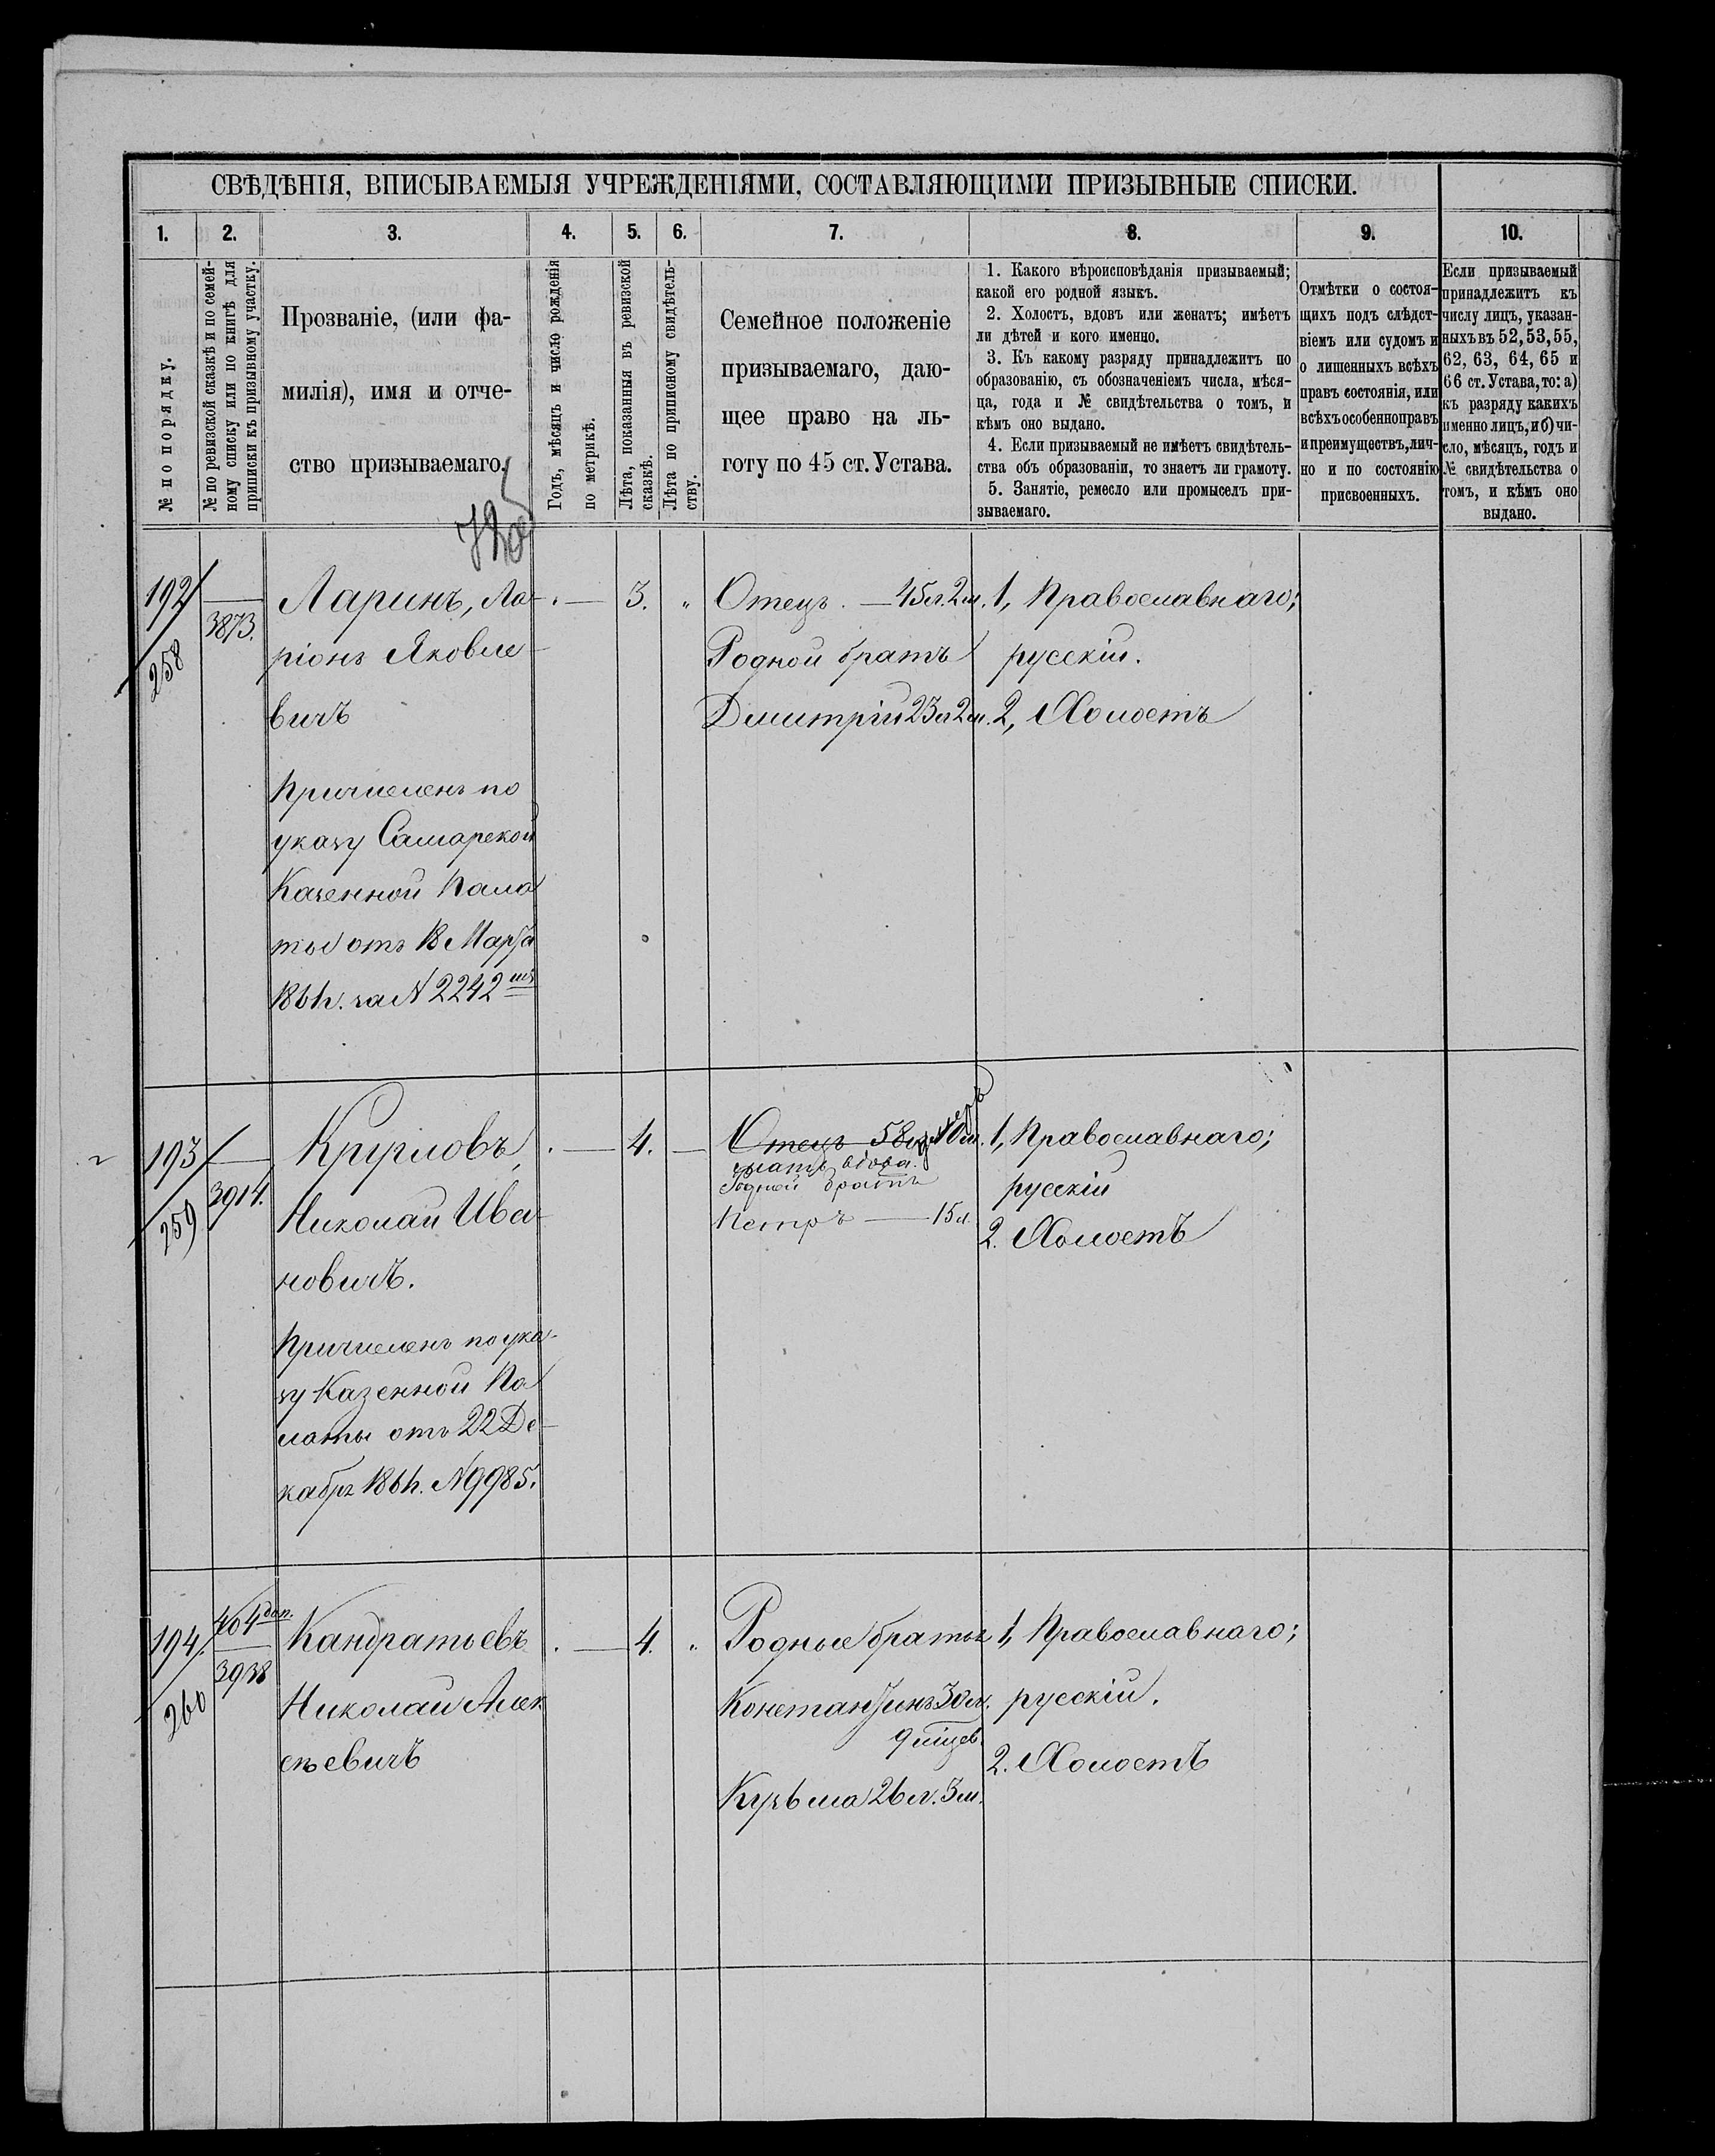 СВѢДѢНІЯ, ВПИСЫВАЕМЫЯ УЧРЕЖДЕНІЯМИ, СОСТАВЛЯЮЩИМИ ПРИЗЫВНЫЕ СПИСКИ.
1. 2. 3. 4. 5. 6. 7. 8. 9. 10.
№ по порядку.
№ по ревизской сказкѣ и по семей-
ному списку или по книгѣ для
приписки къ призывному участку.
Прозваніе, (или фа-
милія), имя и отче-
ство призываемаго.
Годъ, мѣсяцъ и число рожденія
по метрикѣ.
Лѣта, показанныя въ ревизской
сказкѣ.
Лѣта по приписному свидѣтель-
ству.
Семейное положеніе
призываемаго, даю-
щее право на ль-
готу по 45 ст. Устава.
1. Какого вѣроисповѣданія призываемый;
какой его родной языкъ.
2. Холостъ, вдовъ или женатъ; имѣетъ
ли дѣтей и кого именно.
3. Къ какому разряду принадлежитъ по
образованію, съ обозначеніемъ числа, мѣся-
ца, года и № свидѣтельства о томъ, и
кѣмъ оно выдано.
4. Если призываемый не имѣетъ свидѣтель-
ства объ образованіи, то знаетъ ли грамоту.
5. Занятіе, ремесло или промыселъ при-
зываемаго.
Отмѣтки о состоя-
щихъ подъ слѣдст-
віемъ или судомъ и
о лишенныхъ всѣхъ
правъ состоянія, или
всѣхъ особенно правъ
и преимуществъ, лич-
но и по состоянію
присвоенныхъ.
Если призываемый
принадлежитъ къ
числу лицъ, указан-
ныхъ въ 52, 53, 55,
62, 63, 64, 65 и
66 ст. Устава, то: а)
къ разряду какихъ
именно лицъ, и б) чи-
сло, мѣсяцъ, годъ и
№ свидѣтельства о
томъ, и кѣмъ оно
выдано.
192
258
3873.
Ларинъ, Ла-
ріонъ Яковле-
вичъ
Причисленъ по
указу Самарской
Казенной Пала
ты отъ 18 Марта
186 г. за № 2242
3.
"
Отецъ. — 45 л. 2 м.
Родной братъ
Дмитрій 23 л 2 м.
1, Православнаго;
русскій.
2, Холостъ
193
259
3914.
Круиловъ
Николай Ива-
новичъ.
Причисленъ по ука-
зу Казенной Па
латы отъ 22 Де-
кабря 186 г. № 9985.
4.
Отецъ 58 л. 10 м. умеръ
мать вдова.
Родной братъ
Петръ — 15 л.
1, Православнаго;
русскій
2. Холостъ
194.
260
404 доп.
3938
Кандратьевъ
Николай Алек
сѣевичъ
4.
"
Родные братья
Константинъ 30 л.
9 мѣсев.
Кузьма 26 л. 3 м.
1, Православнаго;
русскій.
2. Холостъ